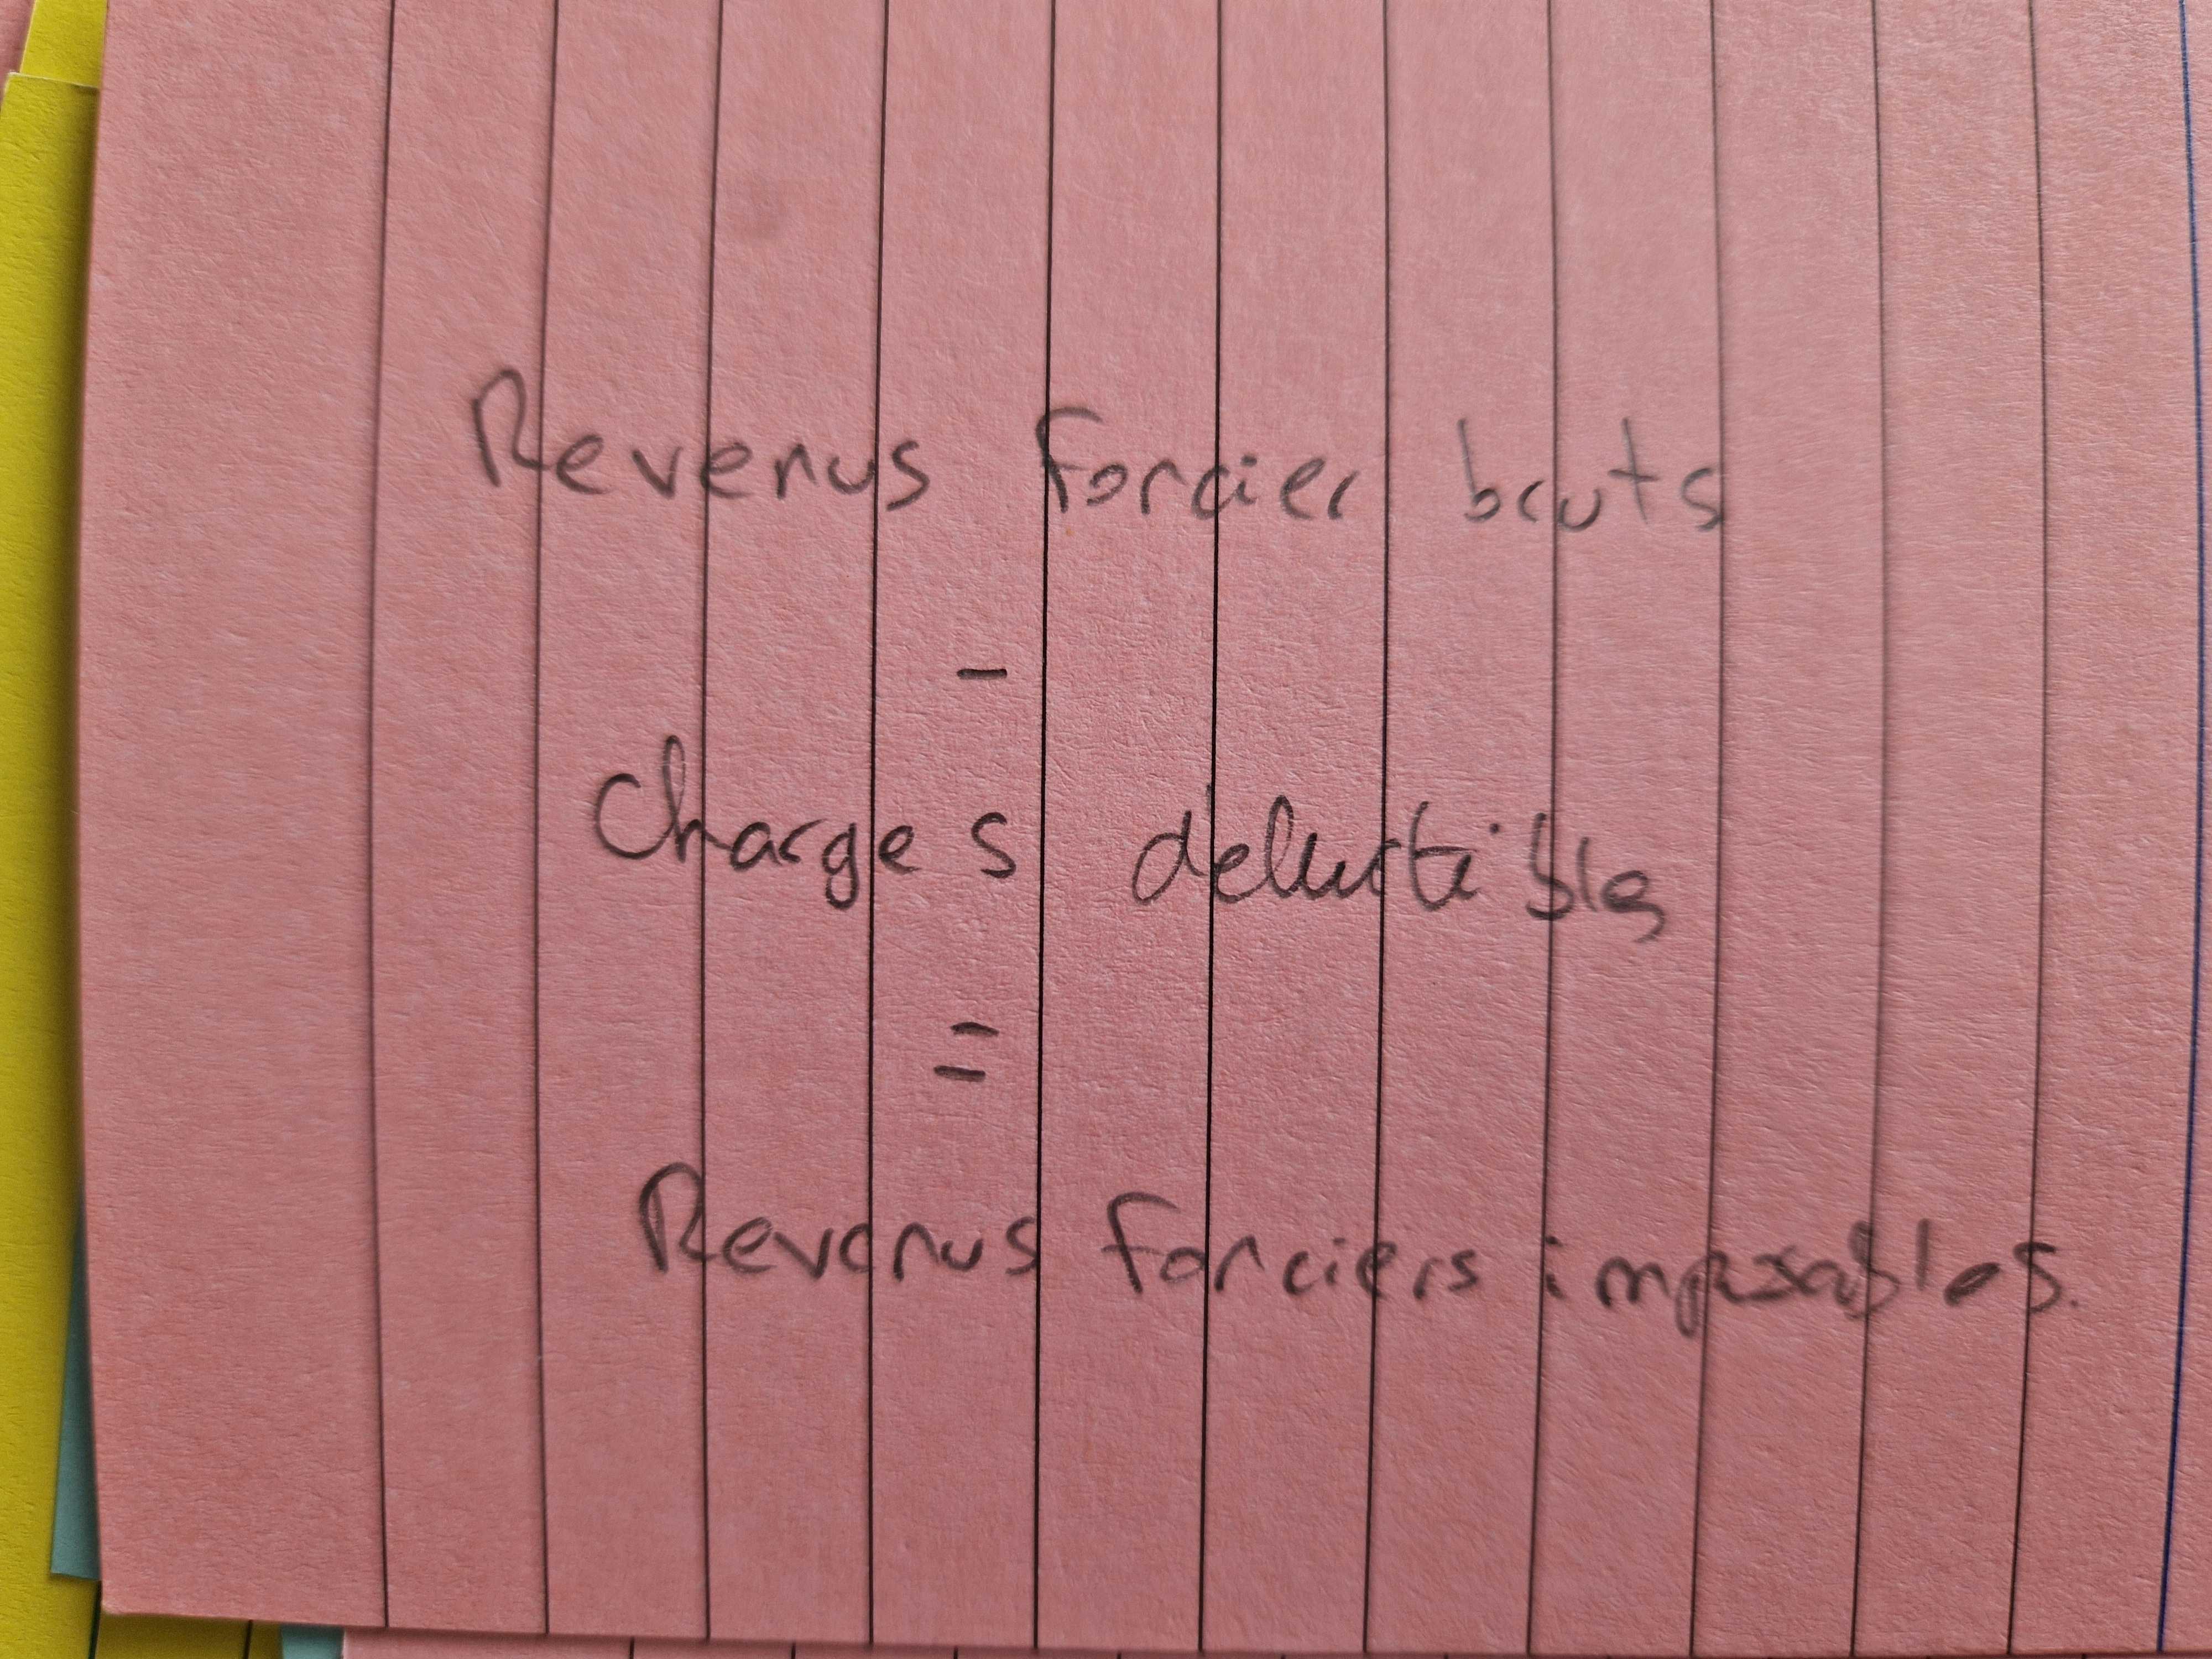 Revenus foncier bruts
-
Charges deductibles
=
Revenus fonciers imposables.